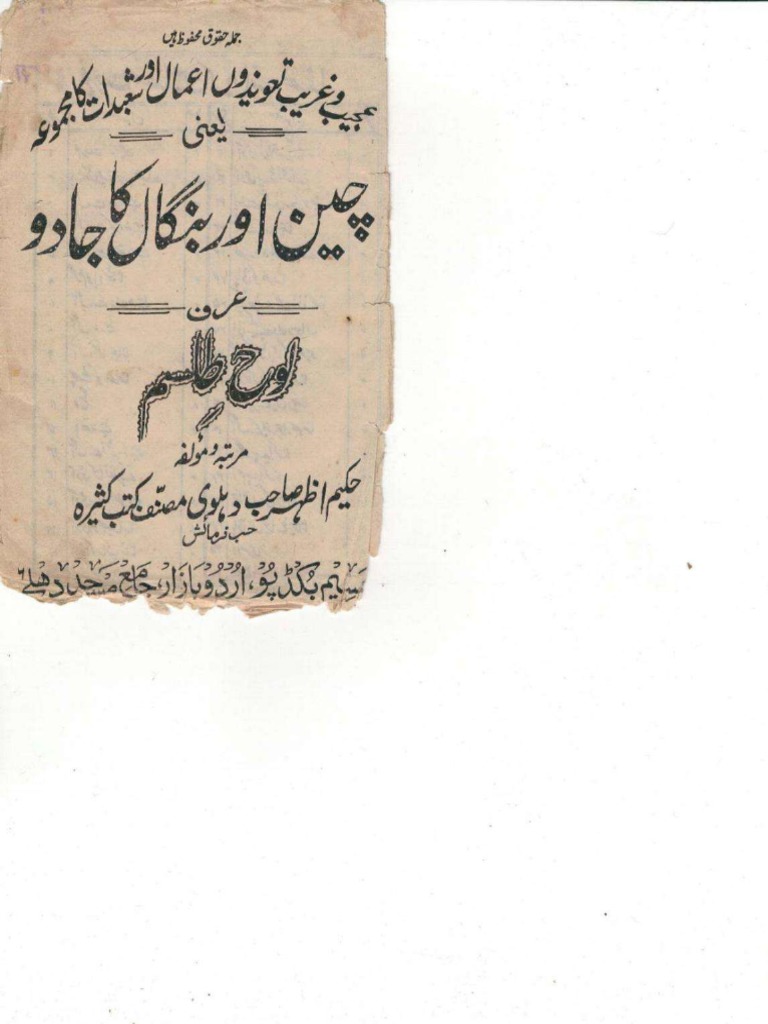 جملہ حقوق محفوظ ہیں
عجیب و غریب تعویذوں اعمال اور شعبدات کا مجموعہ
یعنی
چین اور بنگال کا جادو
عرف
لوح طلسم
مرتبہ و مولفہ
حکیم اظہر صاحب دہلوی مصنّف کتب کثیرہ
حسب فرمائش
نسیم بکڈپو، اردو بازار، جامع مسجد دہلی ۶